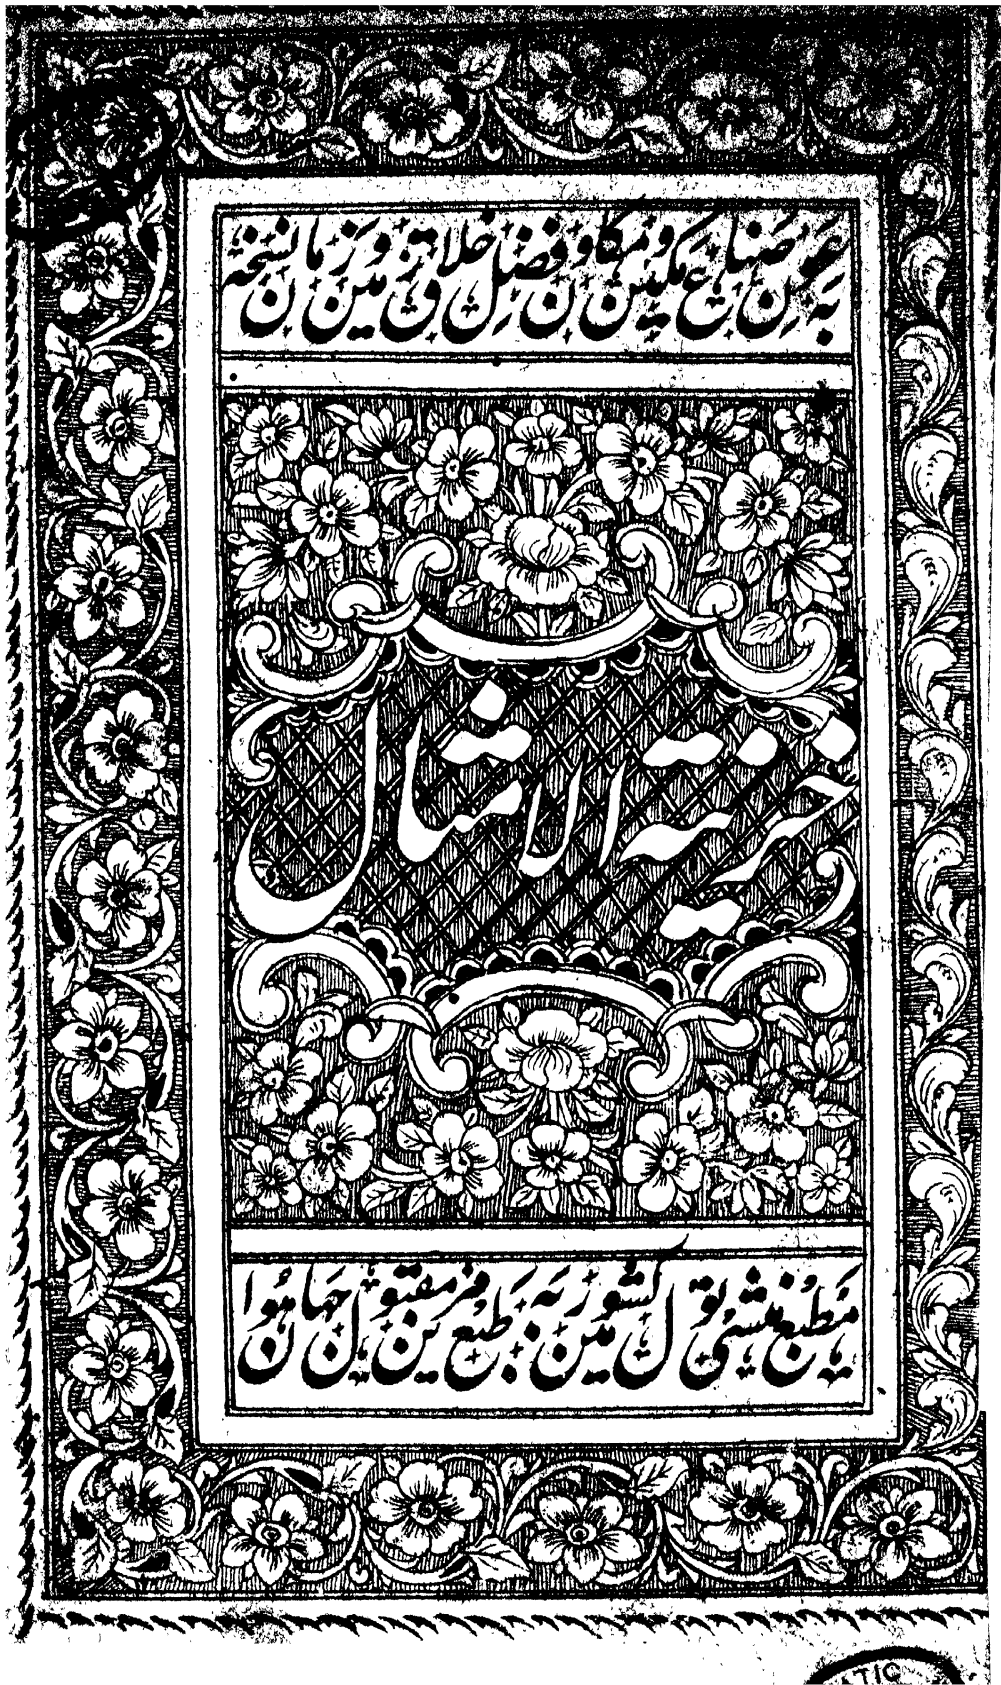 بہ عون صناع مکین و مکان و فضل خلاق زمین و زمان نسخہ
خزینۃ الامثال
مطبع منشی نول کشور میں بہ طبع مزین مقبول جہان ہوا
ATIC